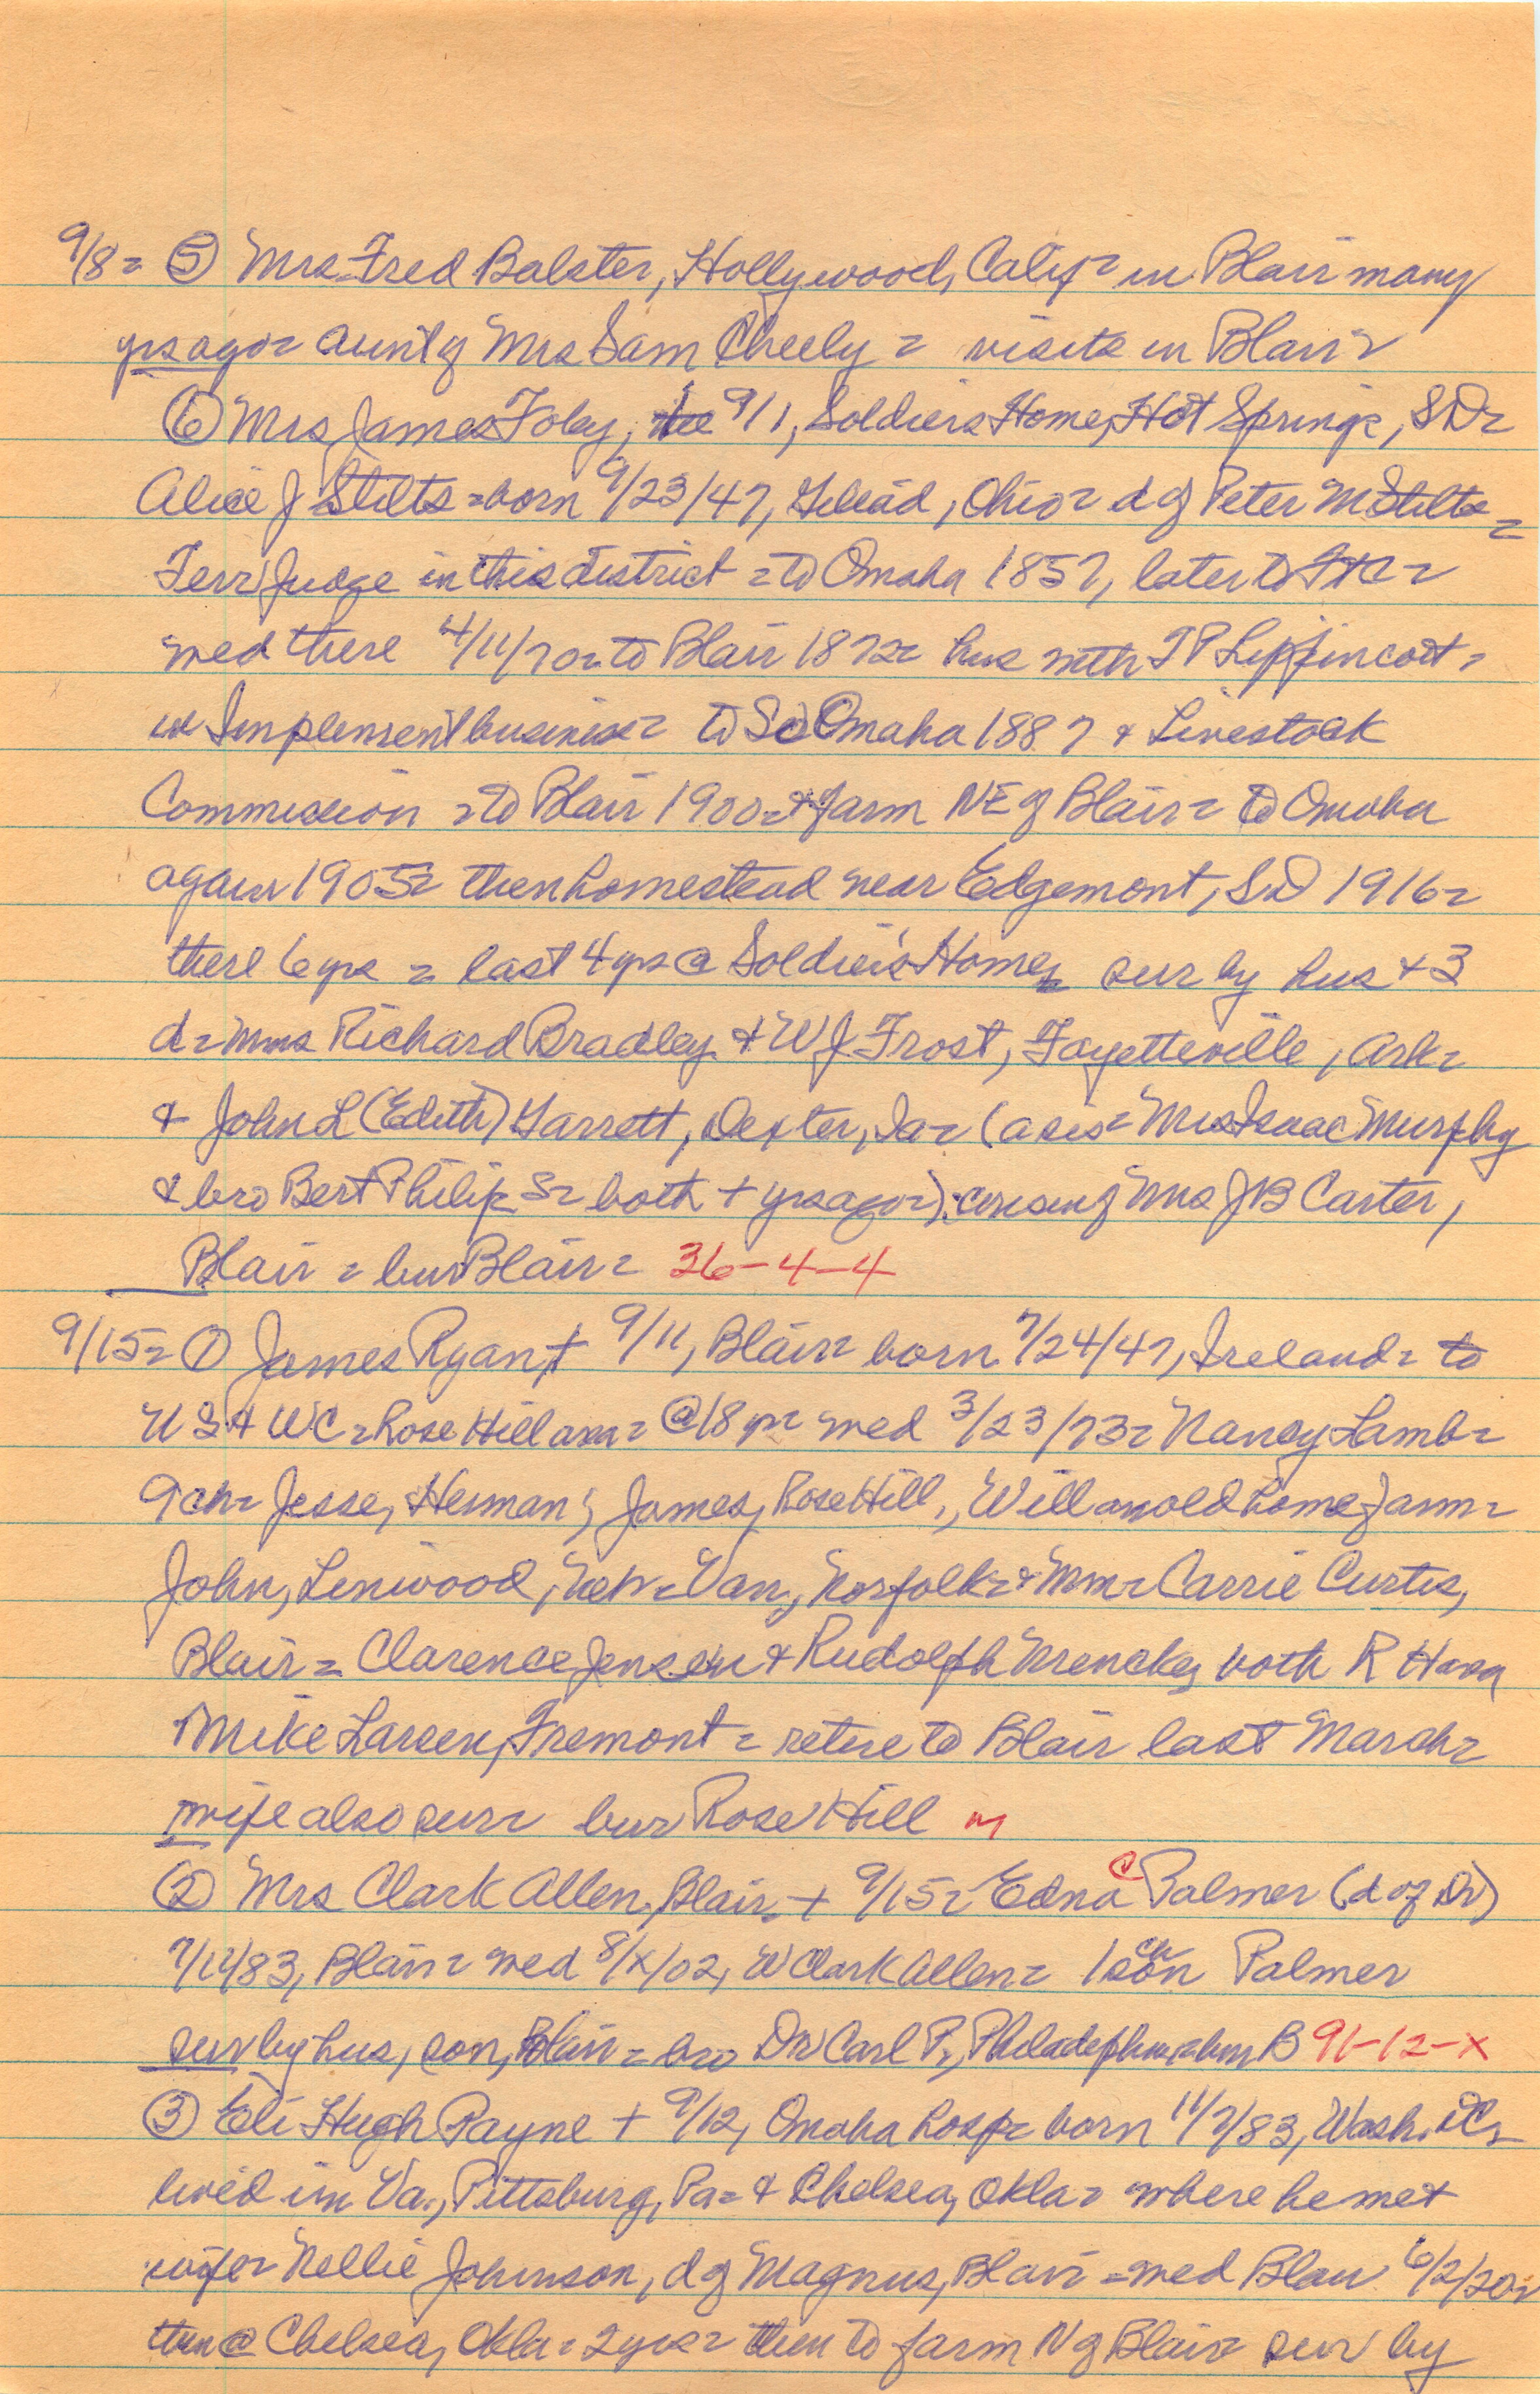 9/8 = ⑤ Mrs Fred Balster, Hollywood, Calif = in Blair many
yrs ago = aunt of Mrs Sam Cheely = visits in Blair =
⑥ Mrs James Foley, 9/1, Soldiers Home, Hot Springs, SD =
Alice J Stilts = born 9/23/47, Gilead, Ohio = d of Peter M Stilts =
Terr Judge in this district = to Omaha 1857, later to =
med there 4/11/70 = to Blair 1872 = hus with TP Lippincott =
in Implement business = to So Omaha 1887 & Livestock
Commission = to Blair 1900 = & farm NE of Blair = to Omaha
again 1905 = then homestead near Edgemont, SD 1916 =
there 6 yrs = last 4 yrs @ Soldiers' Home = sur by hus + 3
d = Mms Richard Bradley & W J Frost, Fayetteville, Ark =
& John L (Edith) Garrett, Dexter, Ia = (a sis = Mrs Isaac Murphy
& bro Bert Philip S = both + yrs ago =) : cousin of Mrs JB Carter,
Blair = bur Blair = 36-4-4
9/15 = ① James Ryan, + 9/11, Blair = born 7/24/47, Ireland = to
US & WC = Rose Hill area = @ 18 yr = med 3/23/73 = Nancy Lamb =
9 ch = Jesse, Herman, James, Rose Hill, Will on old home farm =
John, Linwood, Neb = Van, Norfolk = & Mm = Carrie Curtis,
Blair = Clarence Jensen & Rudolph Mencke, both R
Mike Larsen, Fremont = retire to Blair last March =
wife also sur = bur Rose Hill m
② Mrs Clark Allen, Blair = + 9/15 = Edna C Palmer (d of Dr)
7/11/83, Blair = med 8/x/02, W Clark Allen = 1 ch son Palmer
sur by hus, son, Blair = bro Dr Carl P, Philadelphia = bur B 91-12-x
③ Eli Hugh Payne + 9/12, Omaha hosp = born 11/7/83, Wash. DC =
lived in Va., Pittsburg, Pa = & Chelsea, Okla = where he met
wife = Nellie Johnson, d of Magnus, Blair = med Blair 6/2/20 =
then @ Chelsea, Okla = 2 yrs = then to farm N of Blair = sur by